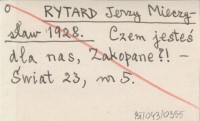 RYTARD Jerzy Mieczy-
sław 1928. Czem jesteś
dla nas, Zakopane?! –
Świat 23, nr 5.
BJ/043/0355